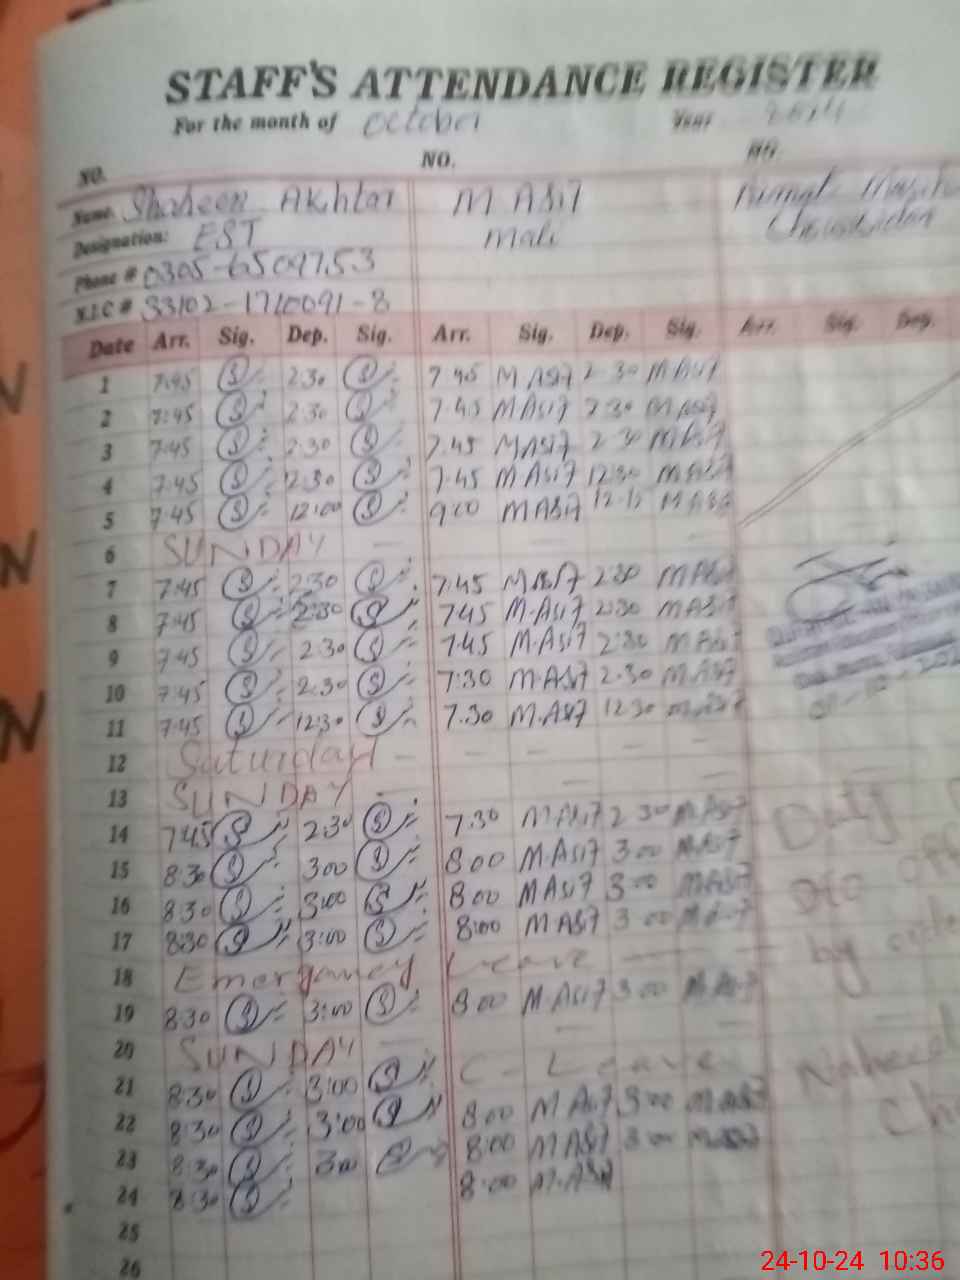 STAFF'S ATTENDANCE REGISTER
For the month of October Year 2024
NO. NO. NO.
Name. Shaheen Akhtar M ASi7
Designation: EST Mali
Phone # 0305-6509753
N.I.C # 33102-1710091-8
Date Arr. Sig. Dep. Sig. Arr. Sig. Dep. Sig. Arr. Sig. Dep.
1 7:45 S 2:30 S 7 45 M ASi7 2 30 M ASi7
2 7:45 S 2:30 S 7.45 M ASi7 2 30 M ASi7
3 7:45 S 2:30 S 7.45 M ASi7 2 30 M ASi7
4 7:45 S 2:30 S 7.45 M ASi7 12 30 M ASi7
5 7:45 S 12:00 S 9 00 M ASi7 M ASi7
6 SUNDAY —
7 7:45 S 2:30 S 7:45 M ASi7 2 30 M ASi7
8 7:45 S 2:30 S 7 45 M.ASi7 2:30 M ASi7
9 7:45 S 2:30 S 7.45 M.ASi7 2:30 M ASi7
10 7:45 S 2:30 S 7:30 M.ASi7 2.30 M ASi7
11 7:45 S 12:30 S 7.30 M.ASi7 12 30
12 Saturday —
13 SUNDAY —
14 7:45 S 2:30 S 7.30 M ASi7 2 30 M ASi7
Duty
15 8:30 S 3:00 S 8 00 M.ASi7 3 00 M ASi7
16 8:30 S 3:00 S 8 00 M ASi7 3 00 M ASi7
17 8:30 S 3:00 S 8:00 M ASi7 3 00
by
18 Emergancy Leave —
19 8:30 S 3:00 S 8 00 M.ASi7 3 00 M ASi7
20 SUNDAY —
21 8:30 S 3:00 S C - Leave
22 8:30 S 3:00 S 8 00 M ASi7 3 00 M ASi7
23 8:30 S 3:00 8:00 M ASi7 3 00
24 8:30 S 8:00 M.ASi7
25
26
24-10-24 10:36